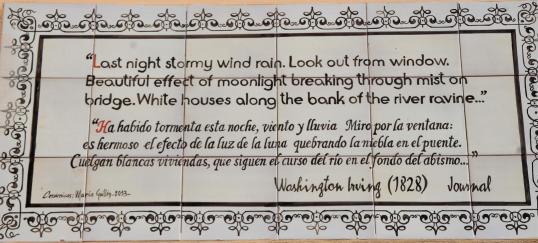 “Last night stormy wind rain. Look out from window.
Beautiful effect of moonlight breaking through mist on
bridge. White houses along the bank of the river ravine...”
“Ha habido tormenta esta noche, viento y lluvia Miro por la ventana:
es hermoso el efecto de la luz de la luna quebrando la niebla en el puente.
Cuelgan blancas viviendas, que siguen el curso del río en el fondo del abismo...”
Washington Irving (1828) Journal
Cerámicas: María 2013